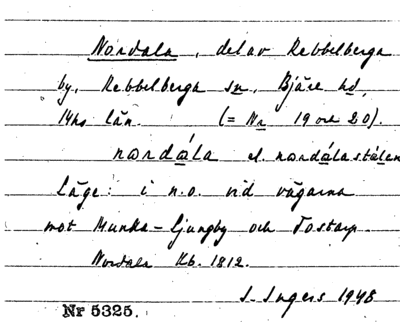 Nordala, del av Rebbelberga
by, Rebbelberga sn, Bjäre hd,
Hks län. (= Nr 19 och 20).
nordála el. nordálastálen
Läge: i n.o. vid vägarna
mot Munka-Ljungby och Tostarp.
Nordala Kb. 1812.
I. Ingers 1948
Nr 5325.